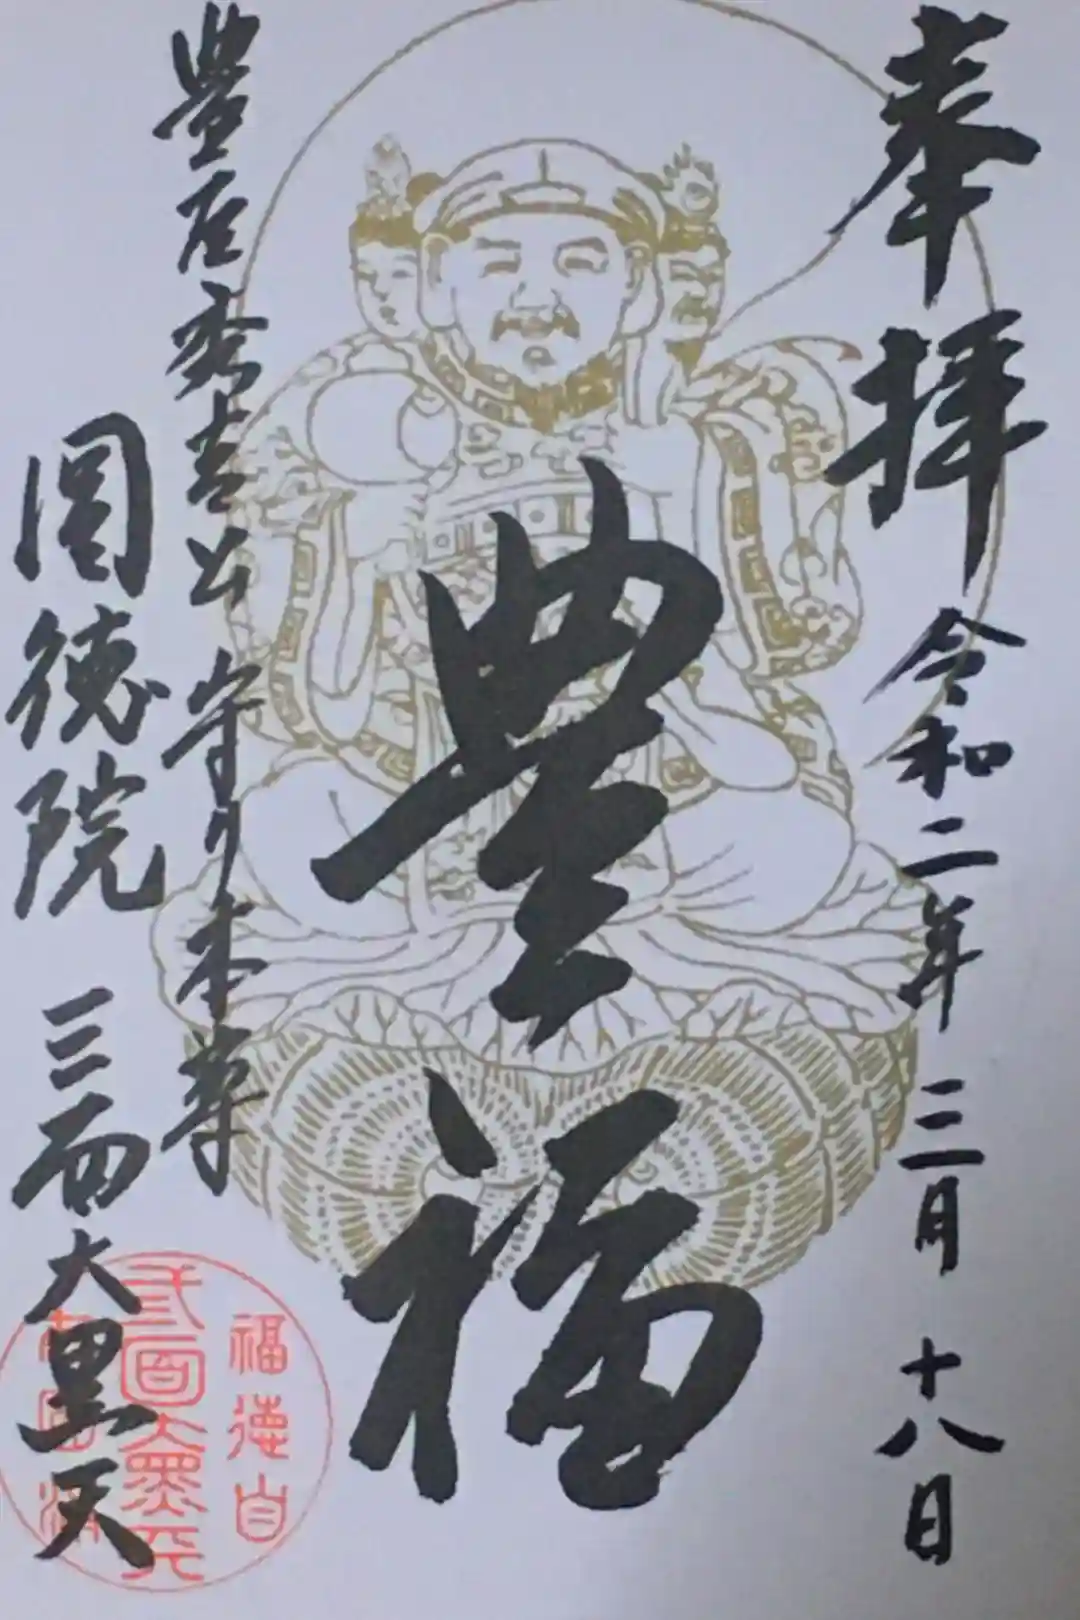 奉拝 令和二年 三月 十八日
豊福
豊臣秀吉公 守り本尊
圓徳院 三面大黒天
福徳自